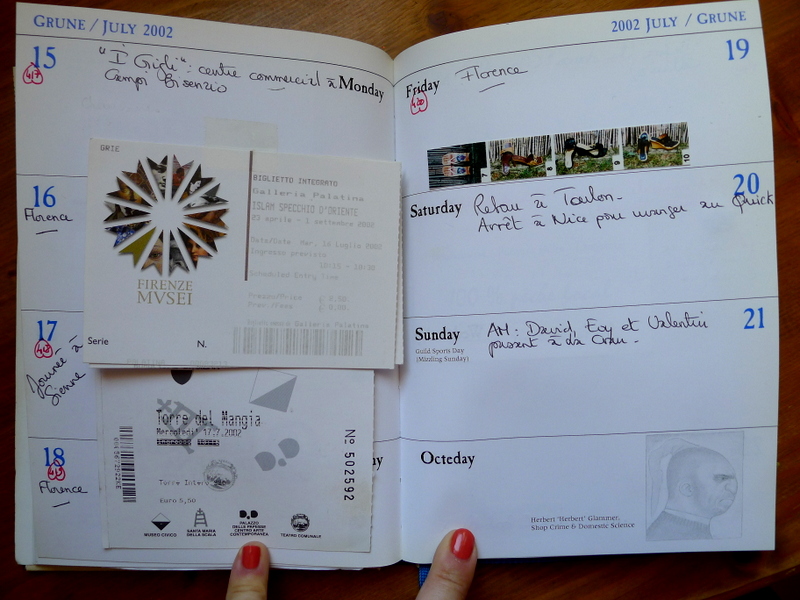 GRUNE / JULY 2002
15
417
"I Gigli" : centre commercial à
Campi Bisenzio
Monday
GRIE
FIRENZE
MVSEI
Serie
N.
BIGLIETTO INTEGRATO
Galleria Palatina
ISLAM SPECCHIO D'ORIENTE
23 aprile - 1 settembre 2002
Date/Date Mar. 16 Luglio 2002
Ingresso previsto
Scheduled Entry Time
Galleria Palatina
16
Florence
17
Journée à
Sienne
18
Florence
Torre del Mangia
Mercoledi' 17.7.2002
Torre
Euro 5,50
No 502592
MUSEO CIVICO
SANTA MARIA
DELLA SCALA
PALAZZO
DELLE PAPESSE
CENTRO ARTE
CONTEMPORANEA
TEATRO COMUNALE
2002 JULY / GRUNE
19
Friday
Florence
7
8
9
10
20
Saturday
Retour à Toulon -
Arrêt à Nice pour manger au Quick
21
Sunday
Guild Sports Day
(Mizzling Sunday)
AM : David, Eoy et Valentin
passent à la
Octeday
Herbert 'Herbert' Glammer,
Shop Crime & Domestic Science